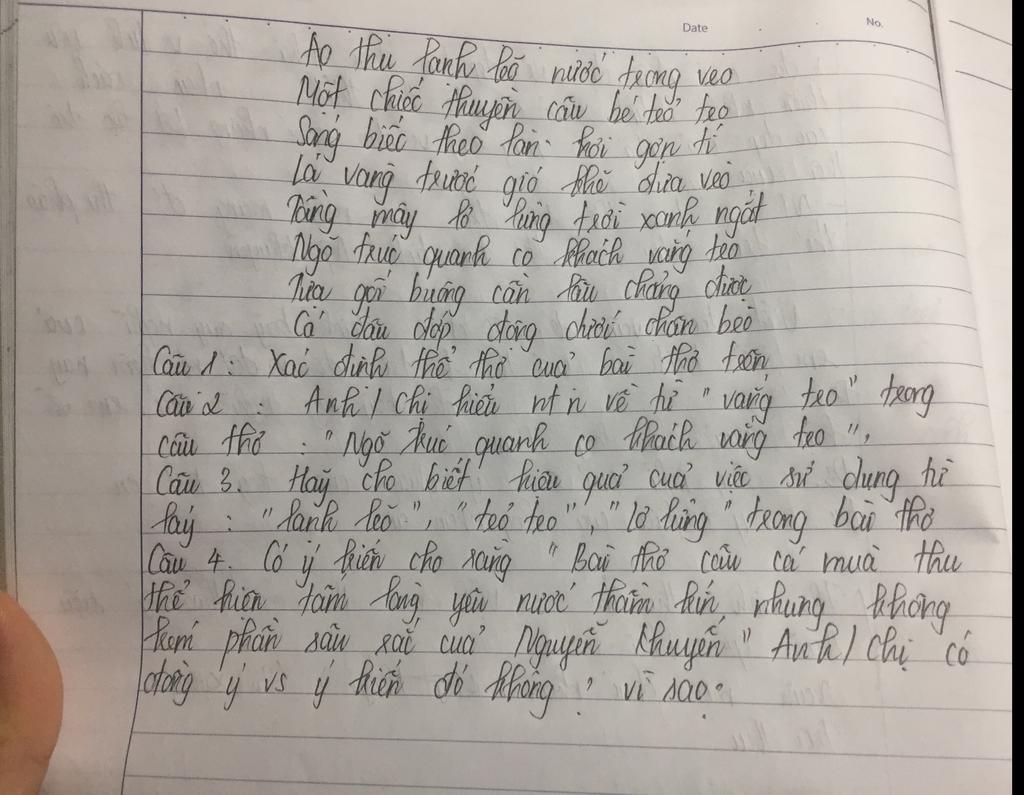 Date No.
Ao thu lạnh lẽo nước trong veo
Một chiếc thuyền câu bé tẻo teo
Sóng biếc theo làn hơi gợn tí
Lá vàng trước gió khẽ đưa vèo
Tầng mây lơ lửng trời xanh ngắt
Ngõ trúc quanh co khách vắng teo
Tựa gối buông cần lâu chẳng được
Cá đâu đớp động dưới chân bèo
Câu 1: Xác định thể thơ của bài thơ trên
Câu 2 : Anh/chị hiểu ntn về từ "vắng teo" trong
câu thơ : "Ngõ trúc quanh co khách vắng teo",
Câu 3. Hãy cho biết hiệu quả của việc sử dụng từ
láy : "lạnh lẽo", "tẻo teo", "lơ lửng" trong bài thơ
Câu 4. Có ý kiến cho rằng "Bài thơ câu cá mùa thu
thể hiện tấm lòng yêu nước thầm kín nhưng không
kém phần sâu sắc của Nguyễn Khuyến" Anh/chị có
đồng ý vs ý kiến đó không, vì sao.